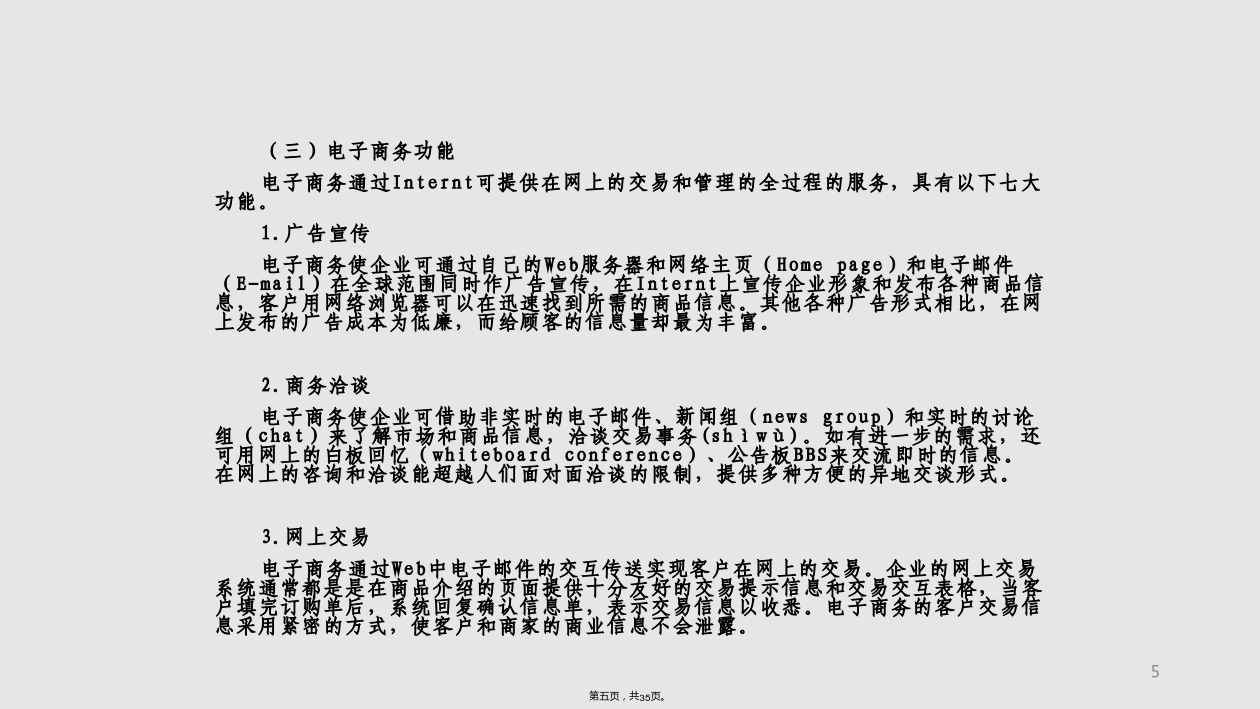 （三）电子商务功能
电子商务通过Internt可提供在网上的交易和管理的全过程的服务，具有以下七大
功能。
1.广告宣传
电子商务使企业可通过自己的Web服务器和网络主页（Home page）和电子邮件
（E-mail）在全球范围同时作广告宣传，在Internt上宣传企业形象和发布各种商品信
息，客户用网络浏览器可以在迅速找到所需的商品信息。其他各种广告形式相比，在网
上发布的广告成本为低廉，而给顾客的信息量却最为丰富。
2.商务洽谈
电子商务使企业可借助非实时的电子邮件、新闻组（news group）和实时的讨论
组（chat）来了解市场和商品信息，洽谈交易事务(shìwù)。如有进一步的需求，还
可用网上的白板回忆（whiteboard conference）、公告板BBS来交流即时的信息。
在网上的咨询和洽谈能超越人们面对面洽谈的限制，提供多种方便的异地交谈形式。
3.网上交易
电子商务通过Web中电子邮件的交互传送实现客户在网上的交易。企业的网上交易
系统通常都是是在商品介绍的页面提供十分友好的交易提示信息和交易交互表格，当客
户填完订购单后，系统回复确认信息单，表示交易信息以收悉。电子商务的客户交易信
息采用紧密的方式，使客户和商家的商业信息不会泄露。
5
第五页，共35页。